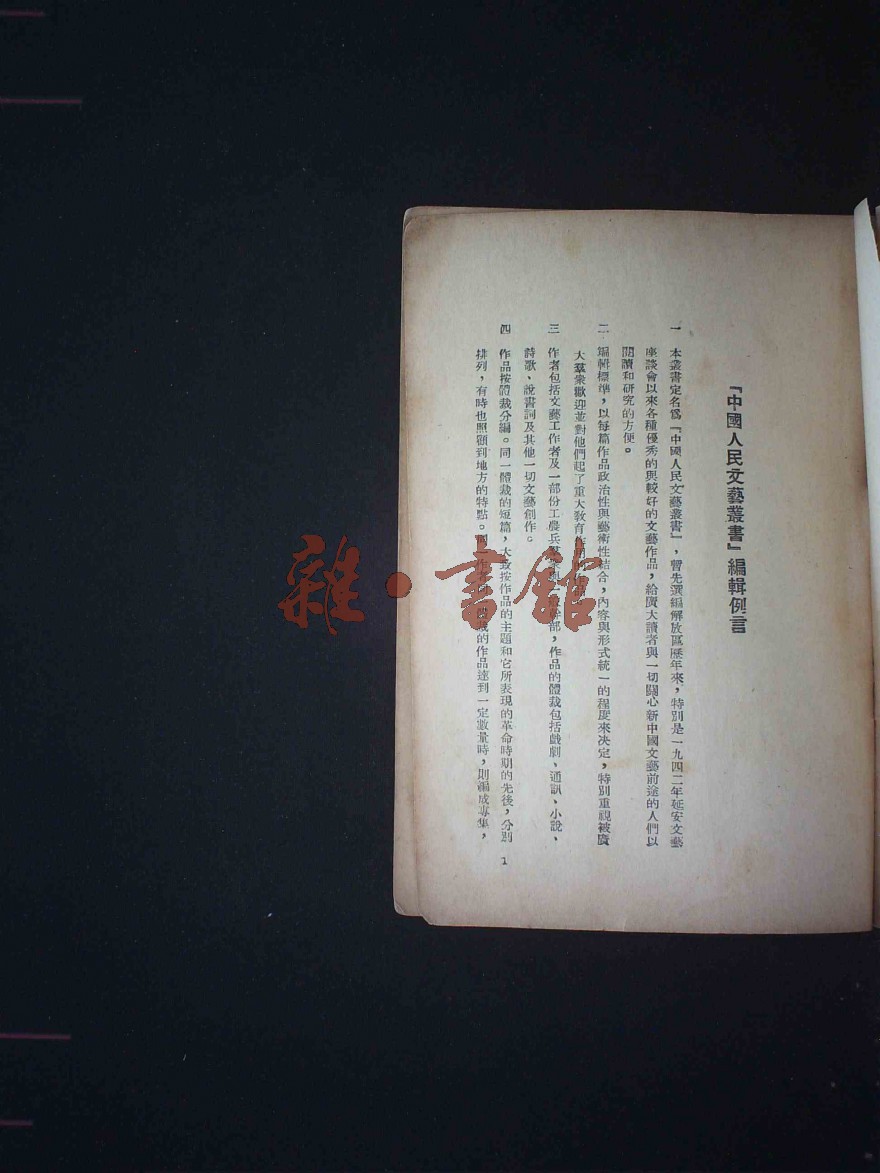 『中國人民文藝叢書』編輯例言
一 本叢書定名爲『中國人民文藝叢書』，暫先選編解放區歷年來，特別是一九四二年延安文藝
座談會以來各種優秀的與較好的文藝作品，給廣大讀者與一切關心新中國文藝前途的人們以
閱讀和研究的方便。
二 編輯標準，以每篇作品政治性與藝術性結合，內容與形式統一的程度來決定，特別重視被廣
大羣衆歡迎並對他們起了重大教育作用的作品。
三 作者包括文藝工作者及一部份工農兵羣衆與一般幹部，作品的體裁包括戲劇、通訊、小說、
詩歌、說書詞及其他一切文藝創作。
四 作品按體裁分編。同一體裁的短篇，大致按作品的主題和它所表現的革命時期的先後，分別
排列，有時也照顧到地方的特點。同一作者同一體裁的作品達到一定數量時，則編成專集，
1
雜·書館